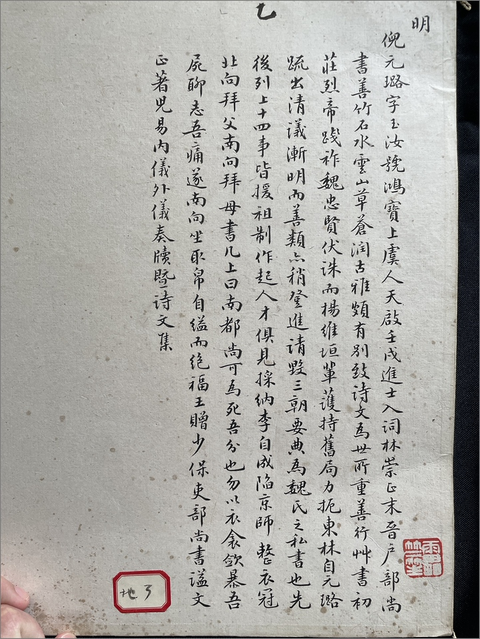 乙
明
倪元璐字玉汝號鴻寶上虞人天啟壬戌進士入詞林崇正末晉户部尚
書善竹石水雲山草蒼润古雅頗有别致诗文為世所重善行艸書初
莊烈帝踐祚魏忠賢伏诛而楊维垣輩護持舊局力扼東林自元璐
疏出清議漸明而善類亦稍登進請毁三朝要典為魏氏之私書也先
後列上十四事皆援祖制作起人才俱見採納李自成陷京師整衣冠
北向拜父南向拜母書几上曰南都尚可為死吾分也勿以衣衾敛暴吾
屍聊志吾痛遂南向坐取帛自缢而绝福王贈少保吏部尚書謚文
正著兒易内儀外儀奏牘暨诗文集
地 3